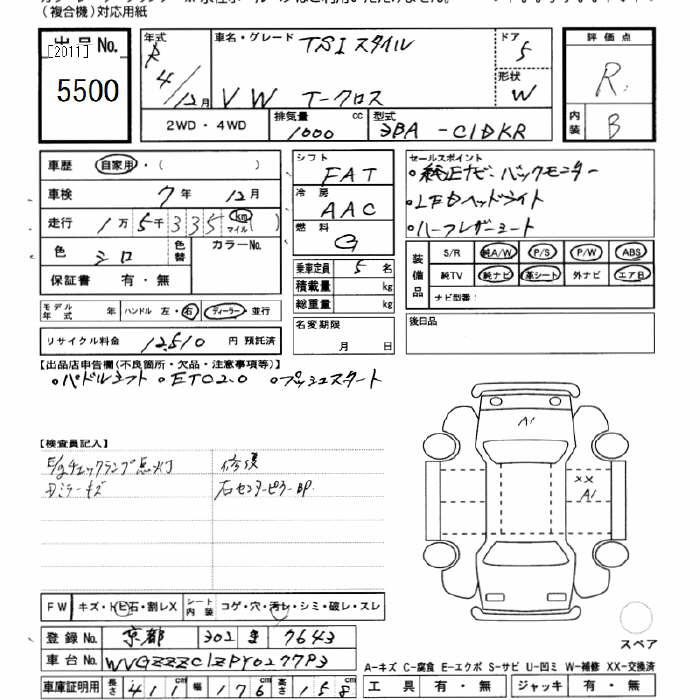 (複合機)対応用紙
出品No.
[2011]
5500
年式
R
4/12月
車名・グレード
TSIスタイル
VW T-クロス
ドア
5
形状
W
2WD・4WD
排気量 1000 cc
型式 3BA-C1DKR
評価点
R
内装 B
車歴 自家用・( )
車検 7年 12月
走行 1万5千335 km マイル ( )
色 シロ 色替 カラーNo.
保証書 有・無
モデル年式 年 ハンドル 左・右 ディーラー・並行
リサイクル料金 12510 円 預託済
シフト FAT
冷房 AAC
燃料 G
乗車定員 5 名
積載量 kg
総重量 kg
名変期限
月 日
セールスポイント
・純正ナビ バックモニター
・LEDヘッドライト
・ハーフレザーシート
装備品 S/R 純A/W P/S P/W ABS
純TV 純ナビ 革シート 外ナビ エアB
ナビ型番:
後日品
【出品店申告欄(不良箇所・欠品・注意事項等)】
・パドルシフト ・ETC2.0 ・プッシュスタート
【検査員記入】
E/gチェックランプ点灯
修復
ミラーキズ
右センターピラーBP
A1
XX
A1
FW キズ・トビ石・割レX シート内装 コゲ・穴・汚レ・シミ・破レ・スレ
登録No. 京都 302 7643
車台No. WVGZZZC1ZPY0277P3
車庫証明用 長さ 411cm 幅 176cm 高さ 158cm
スペア
A-キズ C-腐食 E-エクボ S-サビ U-凹ミ W-補修 XX-交換済
工具 有・無 ジャッキ 有・無